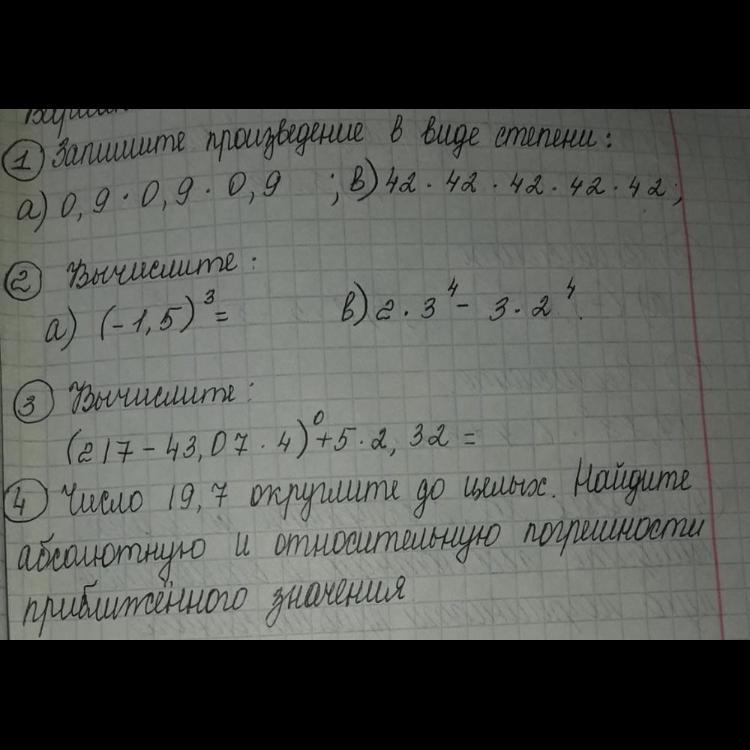 ① Запишите произведение в виде степени:
а) 0,9 · 0,9 · 0,9 ; в) 42 · 42 · 42 · 42 · 42;
② Вычислите:
а) (-1,5)³= в) 2 · 3⁴ - 3 · 2⁴.
③ Вычислите:
(217 - 43,07 · 4)⁰+5 · 2,32 =
④ Число 19,7 округлите до целых. Найдите
абсолютную и относительную погрешности
приближённого значения